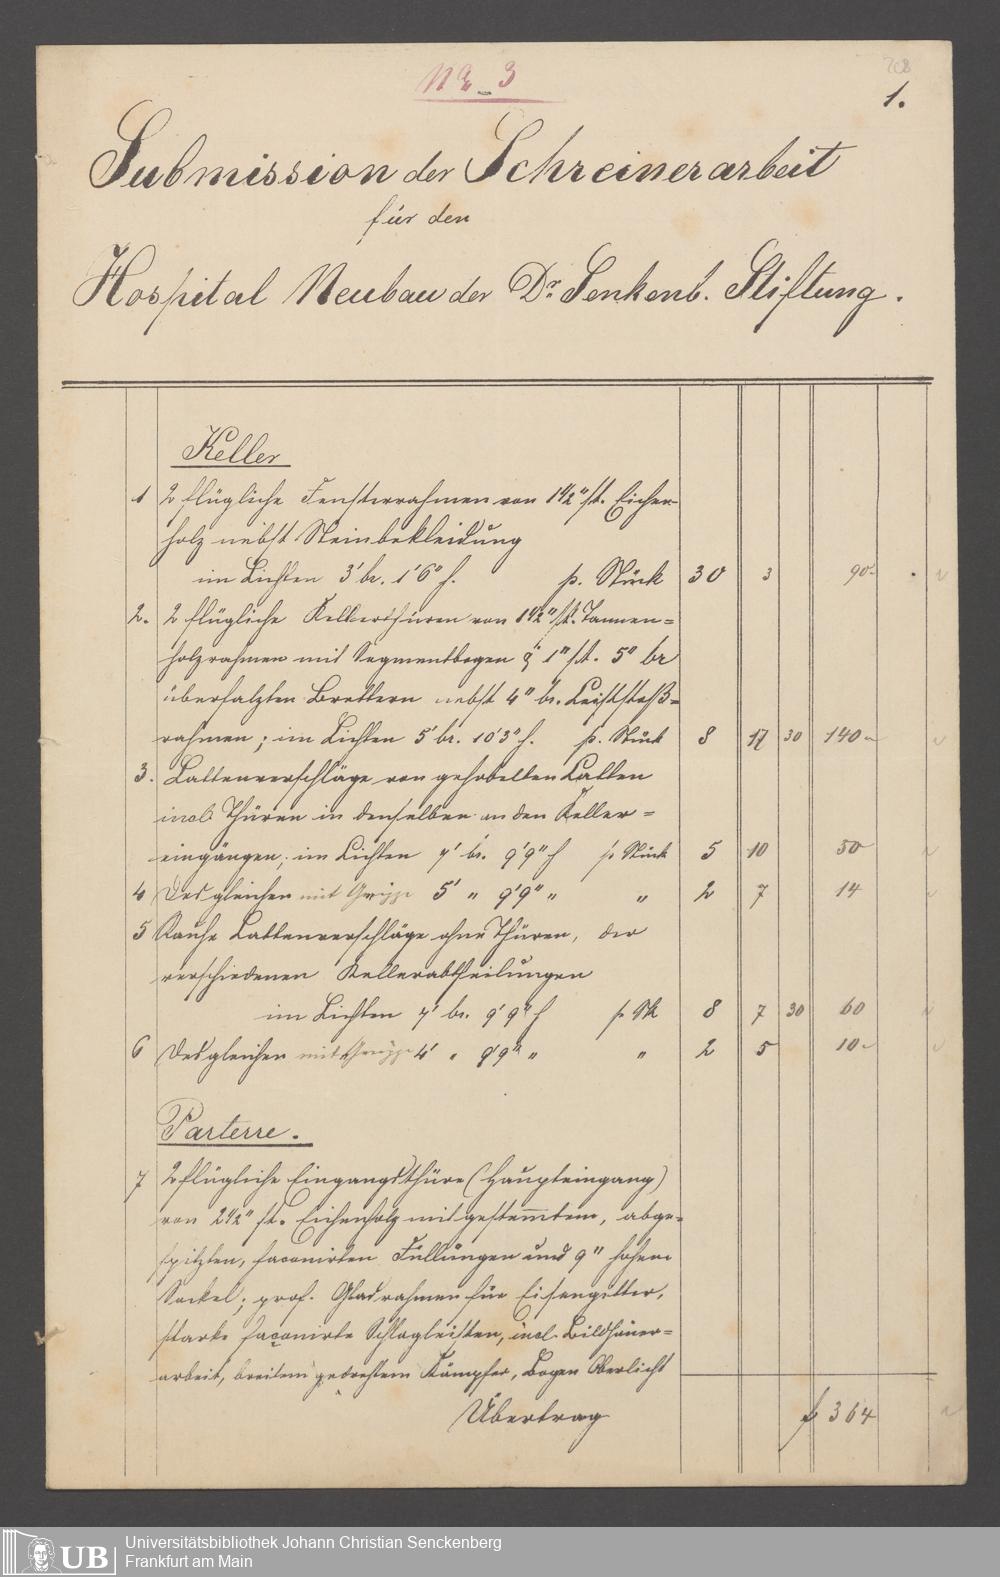 No 3
208
1.
Submission der Schreinerarbeit
für den
Hospital Neubau der Dr. Senkenb. Stiftung.
Keller
1 2 flügliche Fensterrahmen von 1 1/2" st. Eichen-
holz nebst Steinbekleidung
im Lichten 3' br. 1'6" h. p. Stück 30 3 90 -
2. 2 flügliche Kellerthüren von 1 1/2" st. Tannen=
holzrahmen mit Segmentbogen & 1" st. 5" br
überfalzten Brettern nebst 4" br.
rahmen; im Lichten 5' br. 10'3" h. p. Stück 8 17 30 140 -
3. Lattenverschläge von gehobelten Latten
incl. Thüren in denselben an den Keller=
eingängen; im Lichten 7' br. 9'9" h p Stück 5 10 50
4 Desgleichen mit 5' " 9'9" " " 2 7 14
5 Rauhe Lattenverschläge ohne Thüren, der
verschiedenen Kellerabtheilungen
im Lichten 7' br. 9'9" h p Stk 8 7 30 60
6 Desgleichen mit 4' " 9'9" " " 2 5 10 -
Parterre.
7 2 flügliche Eingangsthüre (Haupteingang)
von 2 1/2" st. Eichenholz mit gestemmtem, abge=
spitzten, faconirten Füllungen und 9" hohem
Sockel; prof. Glasrahmen für Eisengitter,
starke façonirte Schlagleisten, incl. Bildhauer=
arbeit, breitem gedrehtem Kämpfer, Bogen Oberlicht
Übertrag f 364
UB
Universitätsbibliothek Johann Christian Senckenberg
Frankfurt am Main